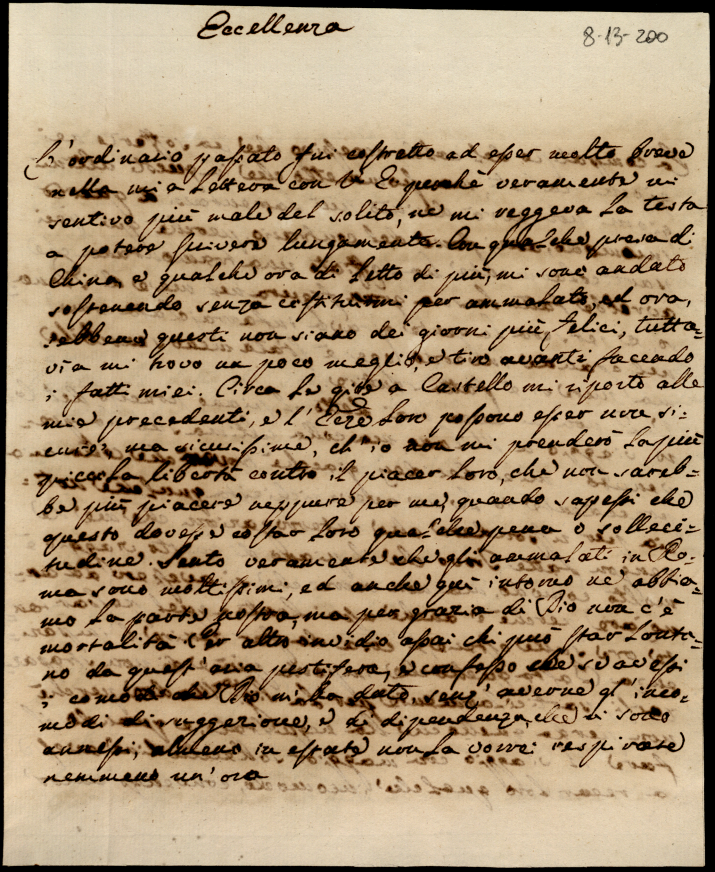 Eccellenza
8-13-200
L'ordinario passato fui costretto ad esser molto breve
nella mia Lettera con V. E. perchè veramente mi
sentivo più male del solito, nè mi reggeva la testa
a potere scrivere lungamente. Con qualche presa di
China, e qualche ora di Letto di più, mi sono andato
sostenendo senza costituirmi per ammalato, ed ora,
sebbene questi non siano dei giorni più felici, tutta-
via mi trovo un poco meglio, e tiro avanti facendo
i fatti miei. Circa le gite a Castello mi riporto alle
mie precedenti, e l'Ecc.ze Loro possono esser non si-
cure, ma sicurissime, ch'io non mi prenderò la più
piccola libertà contro il piacer Loro, che non sareb-
be più piacere neppure per me, quando sapessi che
questo dovesse costar Loro qualche pena o solleci-
tudine. Sento veramente che gli ammalati in Ro-
ma sono moltissimi, ed anche quì intorno ne abbia-
mo la parte nostra, ma per grazia di Dio non c'è
mortalità. Per altro invidio assai chi può star Lonta-
no da quest'aria pestifera, e confesso che se avessi
i comodi che Dio m'ha dato, senz'averne gl'inco-
modi di suggezione, e di dipendenza, che vi sono
annessi, almeno in estate non la vorrei respirare
nemmeno un'ora